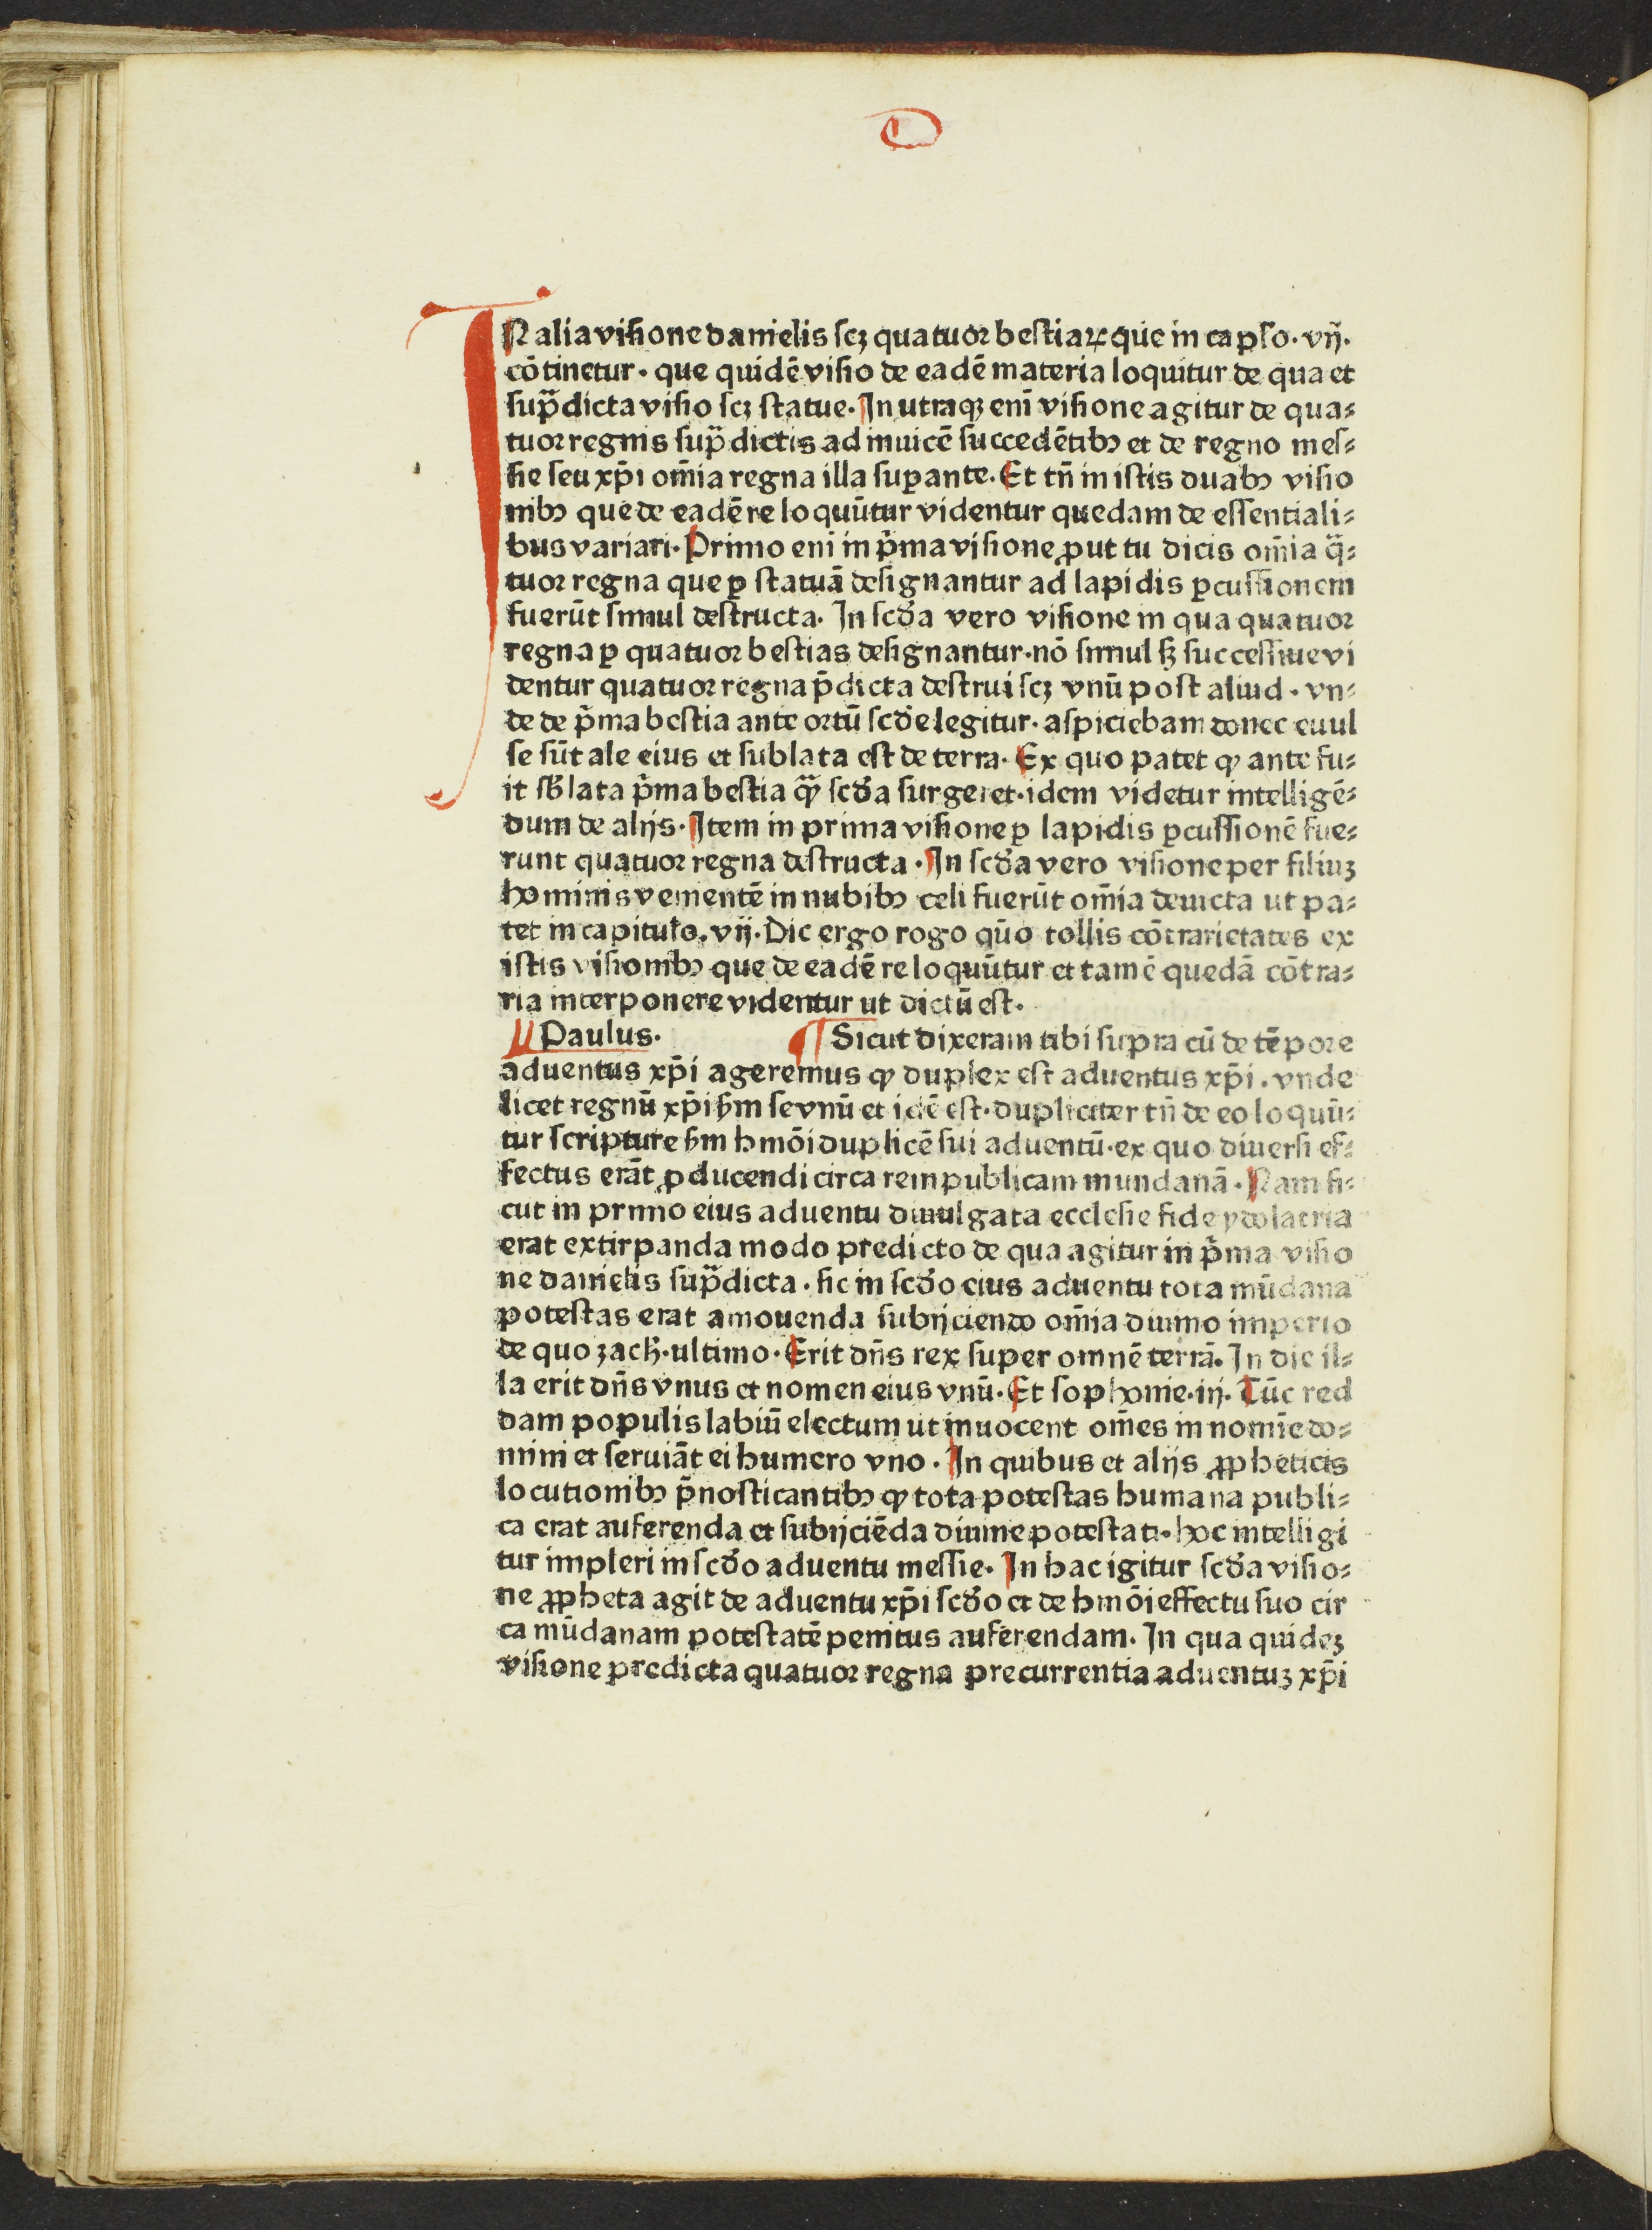 D
IN alia visione danielis scꝫ quatuor bestiaꝝ que in cap̄lo·vij·
cōtinetur· que quidē visio de eadē materia loquitur de qua et
sup̄dicta visio scꝫ statue· In utraqꝫ enī visione agitur de qua⸗
tuor regnis sup̄dictis ad inuicē succedētibꝫ et de regno mes⸗
sie seu xp̄i om̄ia regna illa suꝑante· Et tn̄ in istis duabꝫ visio
nibꝫ que de eadē re loquūtur videntur quedam de essentiali⸗
bus variari· Primo enī in p̄ma visione ꝓut tu dicis om̄ia q̄⸗
tuor regna que ꝑ statuā designantur ad lapidis ꝑcussionem
fuerūt simul destructa· In scd̄a vero visione in qua quatuor
regna ꝑ quatuor bestias designantur·nō simul sꝫ successiue vi
dentur quatuor regna p̄dicta destrui scꝫ vnū post aliud· vn⸗
de de p̄ma bestia ante ortū scd̄e legitur· aspiciebam donec euul
se sūt ale eius et sublata est de terra· Ex quo patet ꝙ ante fu⸗
it sb̄lata p̄ma bestia q̄ꝫ scd̄a surgeret·idem videtur intelligē⸗
dum de alijs· Item in prima visione ꝑ lapidis ꝑcussionē fue⸗
runt quatuor regna destructa· In scd̄a vero visione per filiuꝫ
hominis venientē in nubibꝫ celi fuerūt om̄ia deuicta ut pa⸗
tet in capitulo·vij·Dic ergo rogo qūo tollis cōtrarietates ex
istis visionibꝫ que de eadē re loquūtur et tamē quedā cōtra⸗
ria interponere videntur ut dictū est·
¶ Paulus· ¶ Sicut dixeram tibi supra cū de tēpore
aduentus xp̄i ageremus ꝙ duplex est aduentus xp̄i· vnde
licet regnū xp̄i ẜm se vnū et idē est·dupliciter tn̄ de eo loquū⸗
tur scripture ẜm hmōi duplicē sui aduentū·ex quo diuersi ef⸗
fectus erāt ꝓducendi circa rem publicam mundanā· Nam si⸗
cut in primo eius aduentu diuulgata ecclesie fide ydolatria
erat extirpanda modo predicto de qua agitur in p̄ma visio
ne danielis sup̄dicta· sic in scd̄o eius aduentu tota mūdana
potestas erat amouenda subijciendo om̄ia diuino imperio
de quo zach̄·ultimo· Erit dn̄s rex super omnē terrā· In die il⸗
la erit dn̄s vnus et nomen eius vnū· Et sophonie·iij· Tūc red
dam populis labiū electum ut inuocent om̄es in nomīe do⸗
mini et seruiāt ei humero vno· In quibus et alijs ꝓpheticis
locutionibꝫ p̄nosticantibꝫ ꝙ tota potestas humana publi⸗
ca erat auferenda et subijciēda diuine potestati· hoc intelligi
tur impleri in scd̄o aduentu messie· In hac igitur scd̄a visio⸗
ne ꝓpheta agit de aduentu xp̄i scd̄o et de hmōi effectu suo cir
ca mūdanam potestatē penitus auferendam· In qua quideꝫ
visione predicta quatuor regna precurrentia aduentuꝫ xp̄i